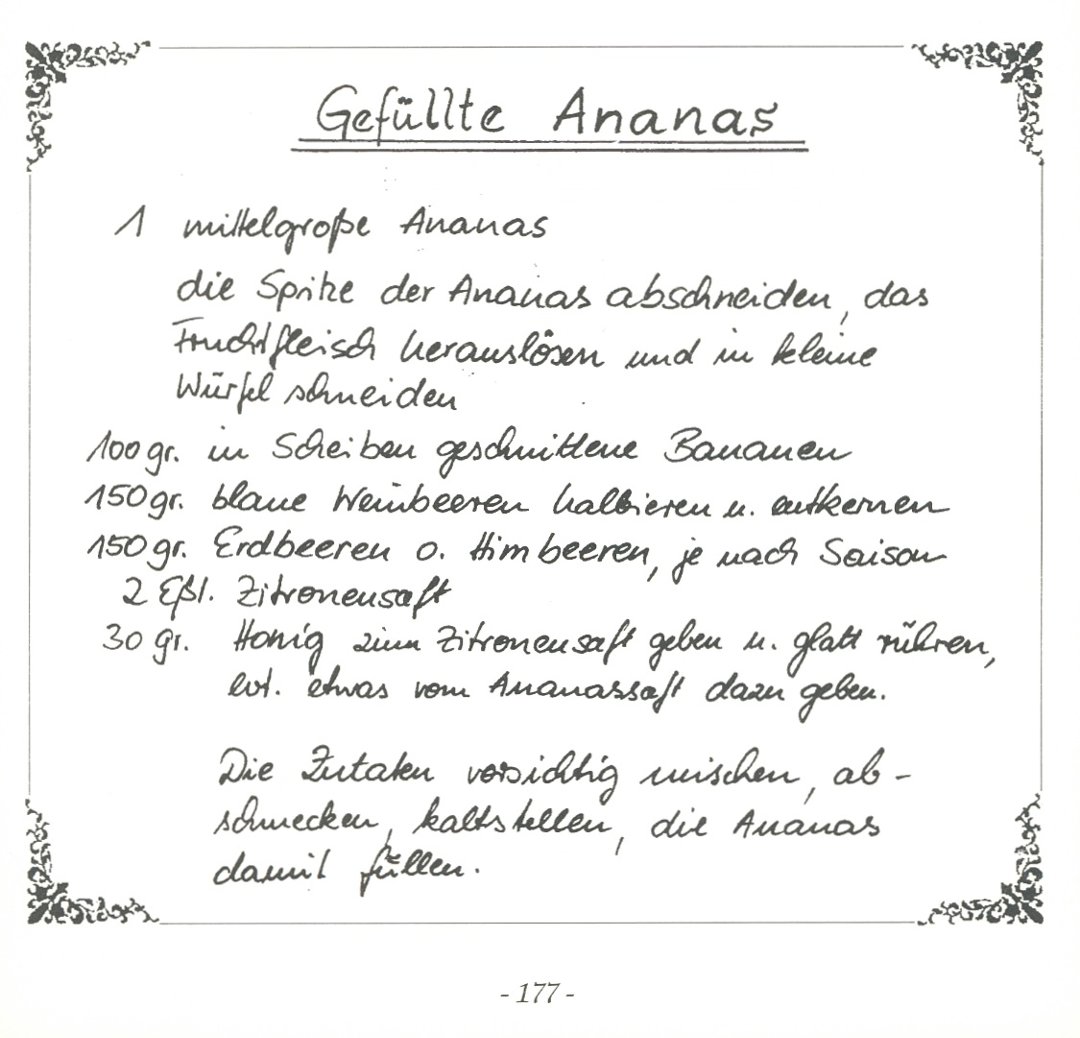 Gefüllte Ananas
1 mittelgroße Ananas
die Spitze der Ananas abschneiden, das
Fruchtfleisch herauslösen und in kleine
Würfel schneiden
100 gr. in Scheiben geschnittene Bananen
150 gr. blaue Weinbeeren halbieren u. entkernen
150 gr. Erdbeeren o. Himbeeren, je nach Saison
2 Eßl. Zitronensaft
30 gr. Honig zum Zitronensaft geben u. glatt rühren,
evt. etwas vom Ananassaft dazu geben.
Die Zutaten vorsichtig mischen, ab-
schmecken, kaltstellen, die Ananas
damit füllen.
- 177 -